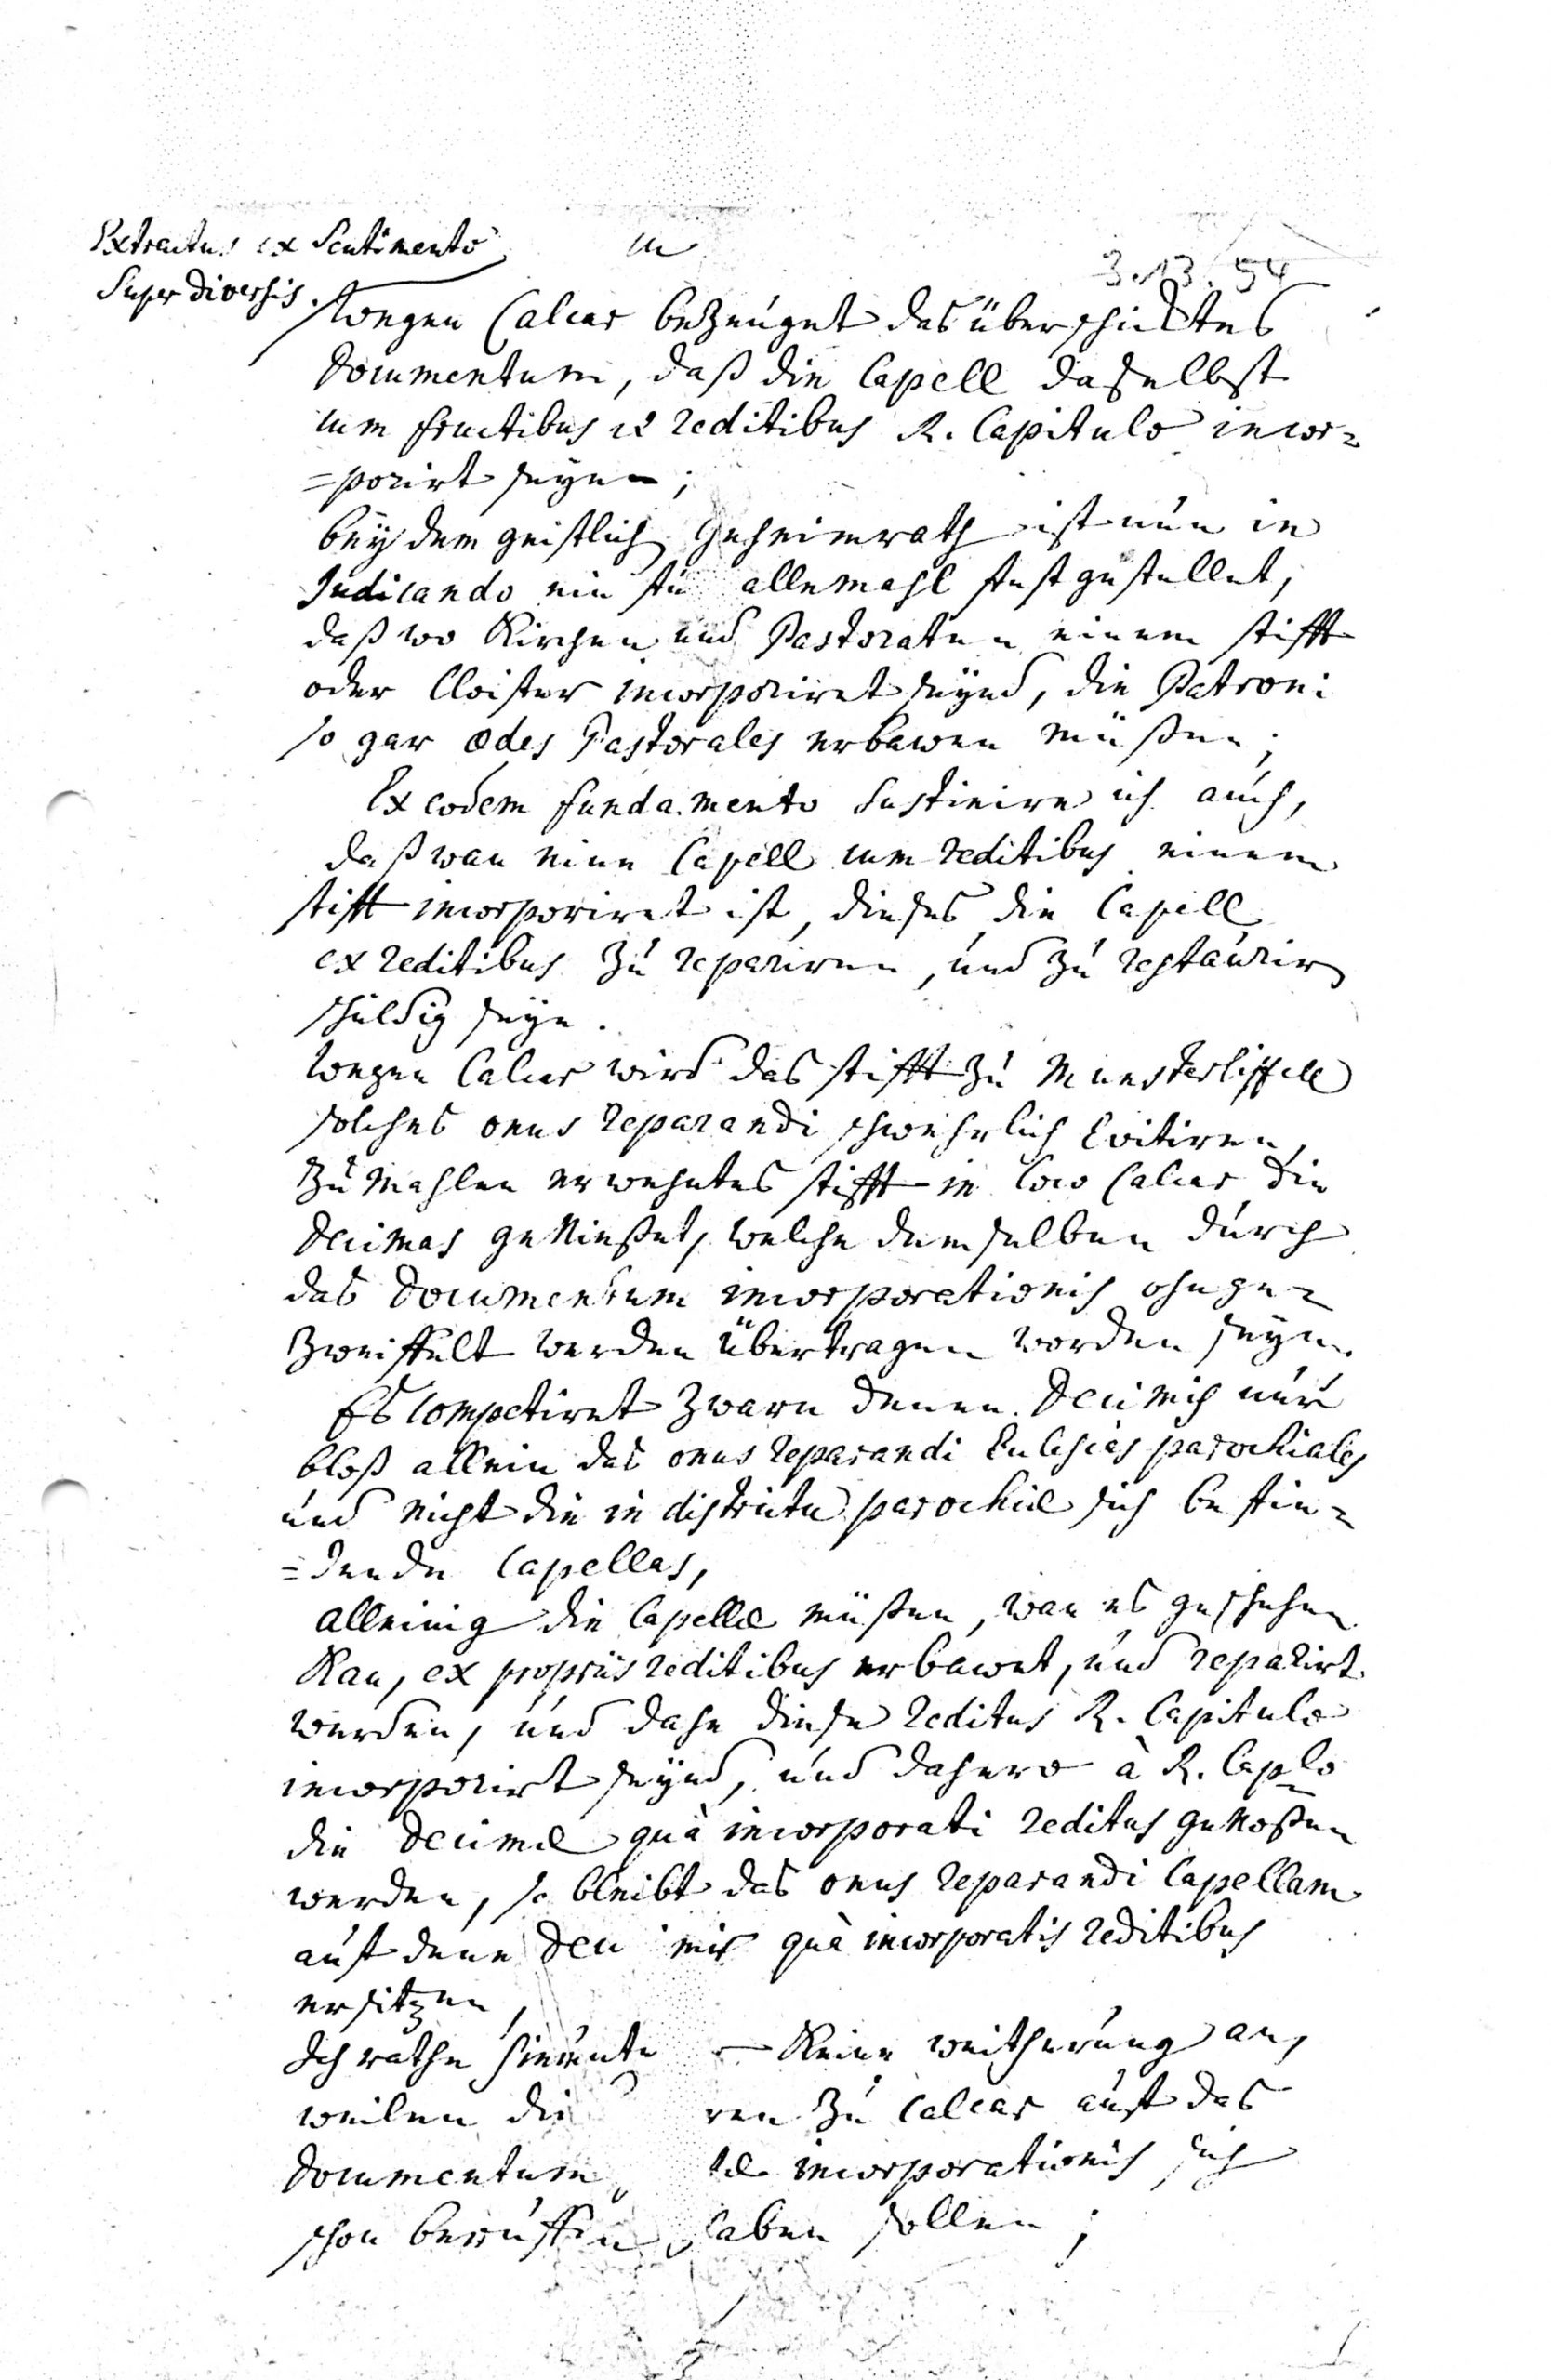 Extractus ex Sentimento
Super diversis.
3.13. 54
Wegen Calcar bezeuget das überschicktes
Documentum, daß die Capell daselbst
cum fructibus et reditibus R. Capitulo incor=
=porirt seyen;
bey dem geistlich Geheimrath ist nun in
Judicando ein für allemahl festgestellet,
daß wo Kirchen und Pastoraten einem stifft
oder Cloister incorporiret seynd, die Patroni
so gar ædes Pastorales erbawen müßen;
Ex eodem fundamento sustinire ich auch,
daß wan eine Capell cum reditibus einem
stifft incorporiret ist, dieses die Capell
ex reditibus zu repariren, und zu restaurir
schuldig seye.
Wegen Calcar wird das stifft zu Munstereiffell
solches onus reparandi schwehrlich evitiren,
zumahlen erwehntes stifft in loco Calcar die
Decimas genießet, welche demselben durch
das Documentum incorporationis ohnge=
zweiffelt werden übertragen worden seyn.
Es competiret zwarn denen Decimis nur
bloß allein das onus reparandi Ecclesias parochiales
und nicht die in districtu parochiæ sich befin=
=dende Capellas,
alleinig die Capellæ müßen, wan es geschehen
kan, ex propriis reditibus erbawet, und reparirt
werden, und dahe diese reditus R. Capitulo
incorporirt seynd, und dahero à R. Caplo
die Decimæ quà incorporati reditus genoßen
werden, so bleibt das onus reparandi Capellam
auf denen Decimis quà incorporatis reditibus
ersitzen,
Ich rathe hierunte keine weitherung an,
weilen die ren zu Calcar auf das
Documentum incorporationis sich
schon beruffen haben sollen;